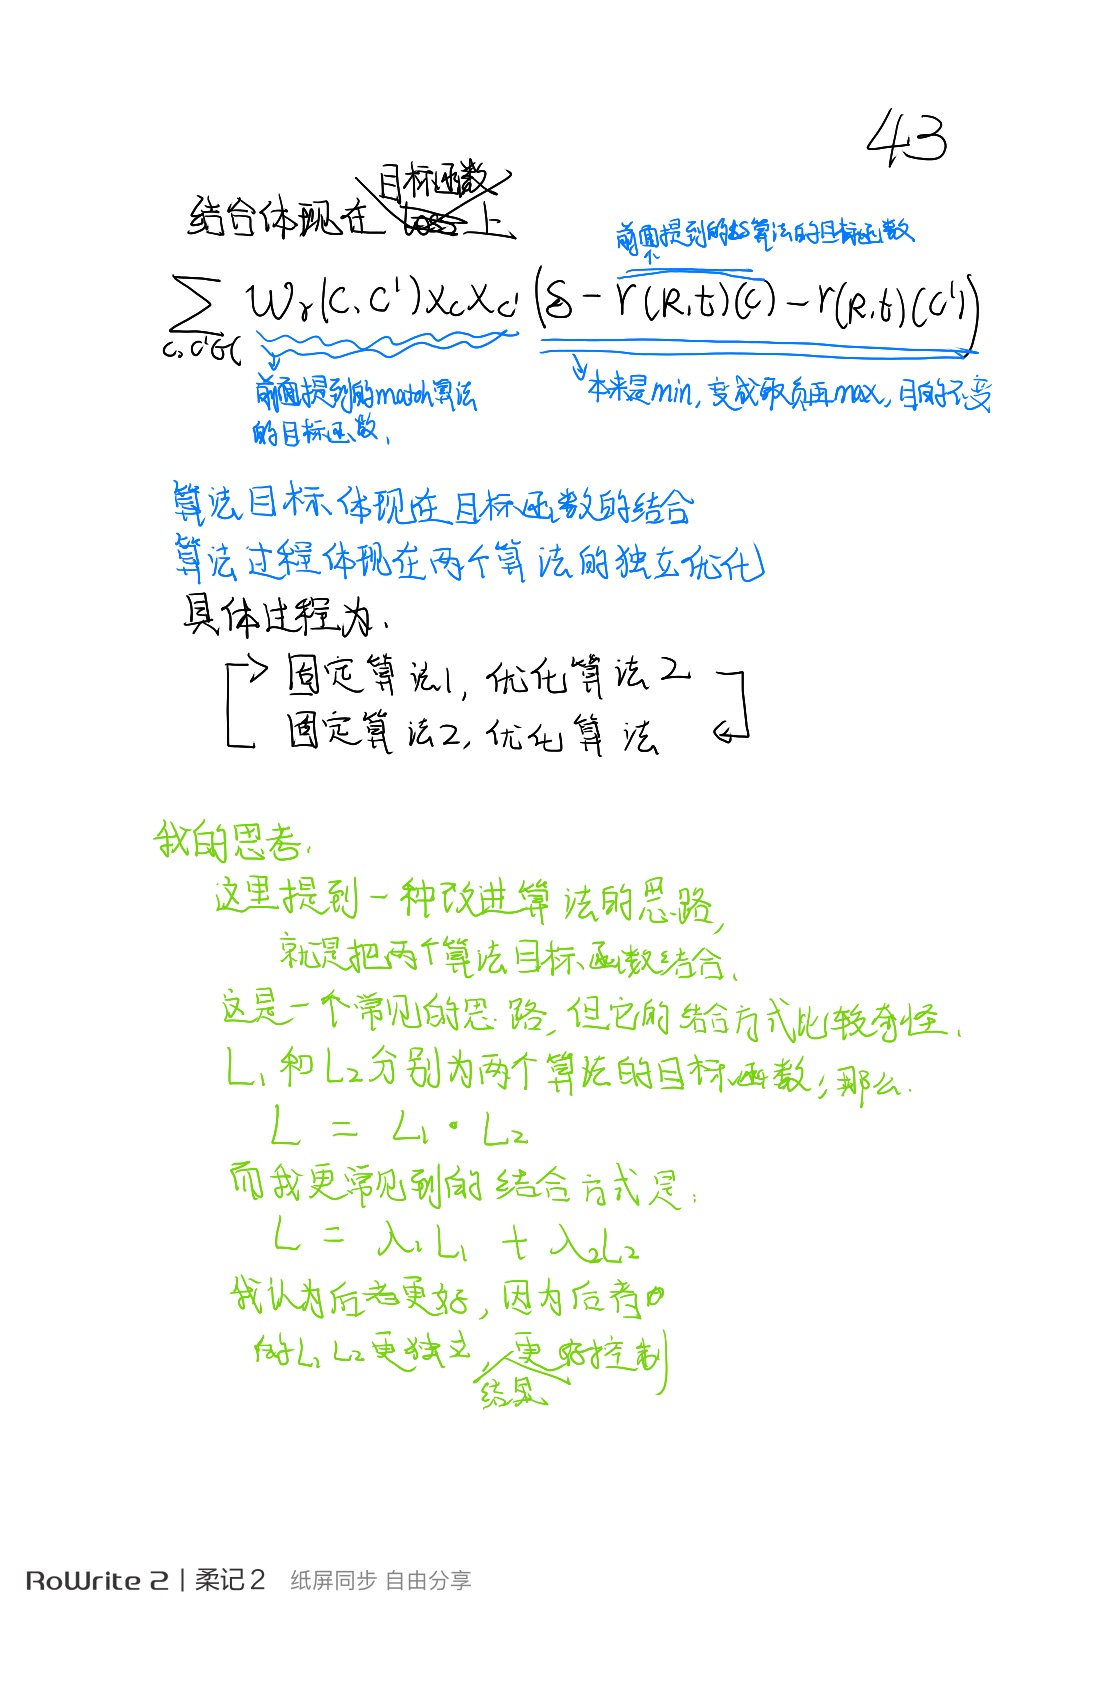 43
目标函数
结合体现在 loss 上
前面提到的BS算法的目标函数
∑ Wγ(C,C')XcXc' (δ - r(R,t)(C) - r(R,t)(C'))
C,C'∈C
前面提到的match算法
的目标函数,
本来是min,变成取负再max,目的不变
算法目标体现在目标函数的结合
算法过程体现在两个算法的独立优化
具体过程为.
固定算法1, 优化算法2
固定算法2, 优化算法
我的思考.
这里提到一种改进算法的思路,
就是把两个算法目标函数结合.
这是一个常见的思路,但它的结合方式比较奇怪.
L1和L2分别为两个算法的目标函数,那么.
L = L1 · L2
而我更常见到的结合方式是:
L = λ1L1 + λ2L2
我认为后者更好,因为后者
的L1 L2更独立,结果更好控制
RoWrite 2 | 柔记2 纸屏同步 自由分享